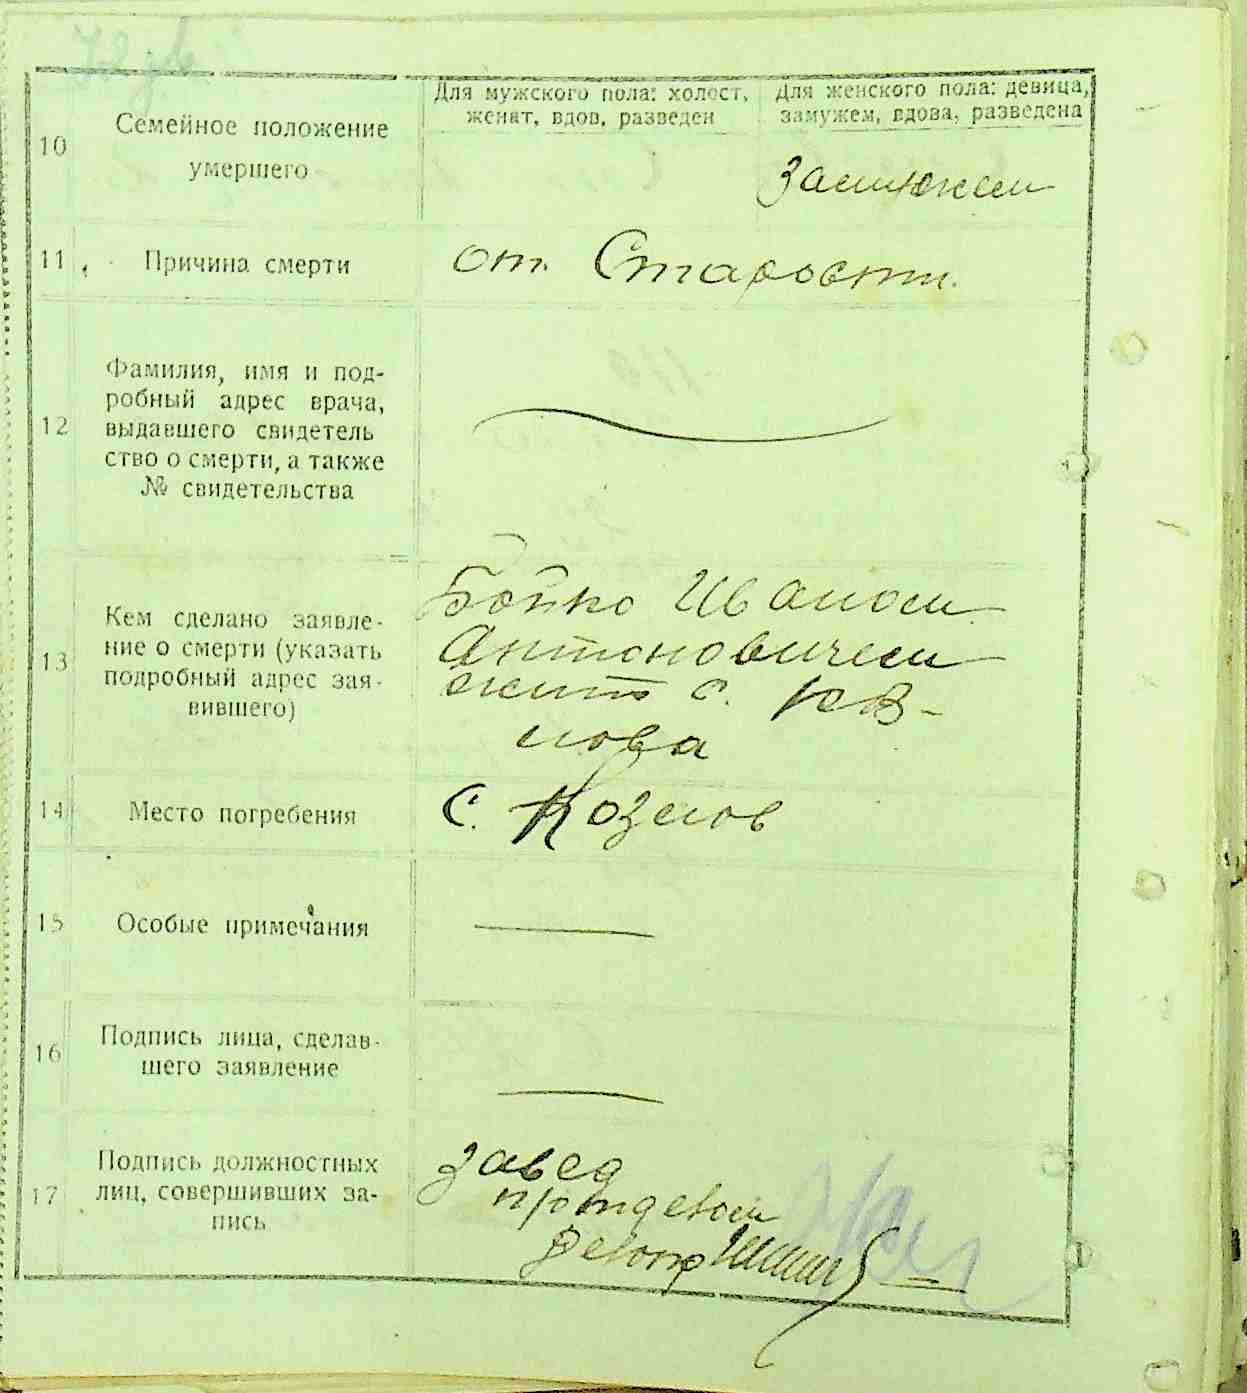 Для мужского пола: холост,
женат, вдов, разведен
Для женского пола: девица,
замужем, вдова, разведена
10
Семейное положение
умершего
Замужем
11
Причина смерти
от. Старости.
12
Фамилия, имя и под-
робный адрес врача,
выдавшего свидетель
ство о смерти, а также
№ свидетельства
13
Кем сделано заявле-
ние о смерти (указать
подробный адрес зая-
вившего)
Бойко Иваном
Антоновичем
жит с.
14
Место погребения
с. Козлов
15
Особые примечания
16
Подпись лица, сделав-
шего заявление
17
Подпись должностных
лиц, совершивших за-
пись
Завед